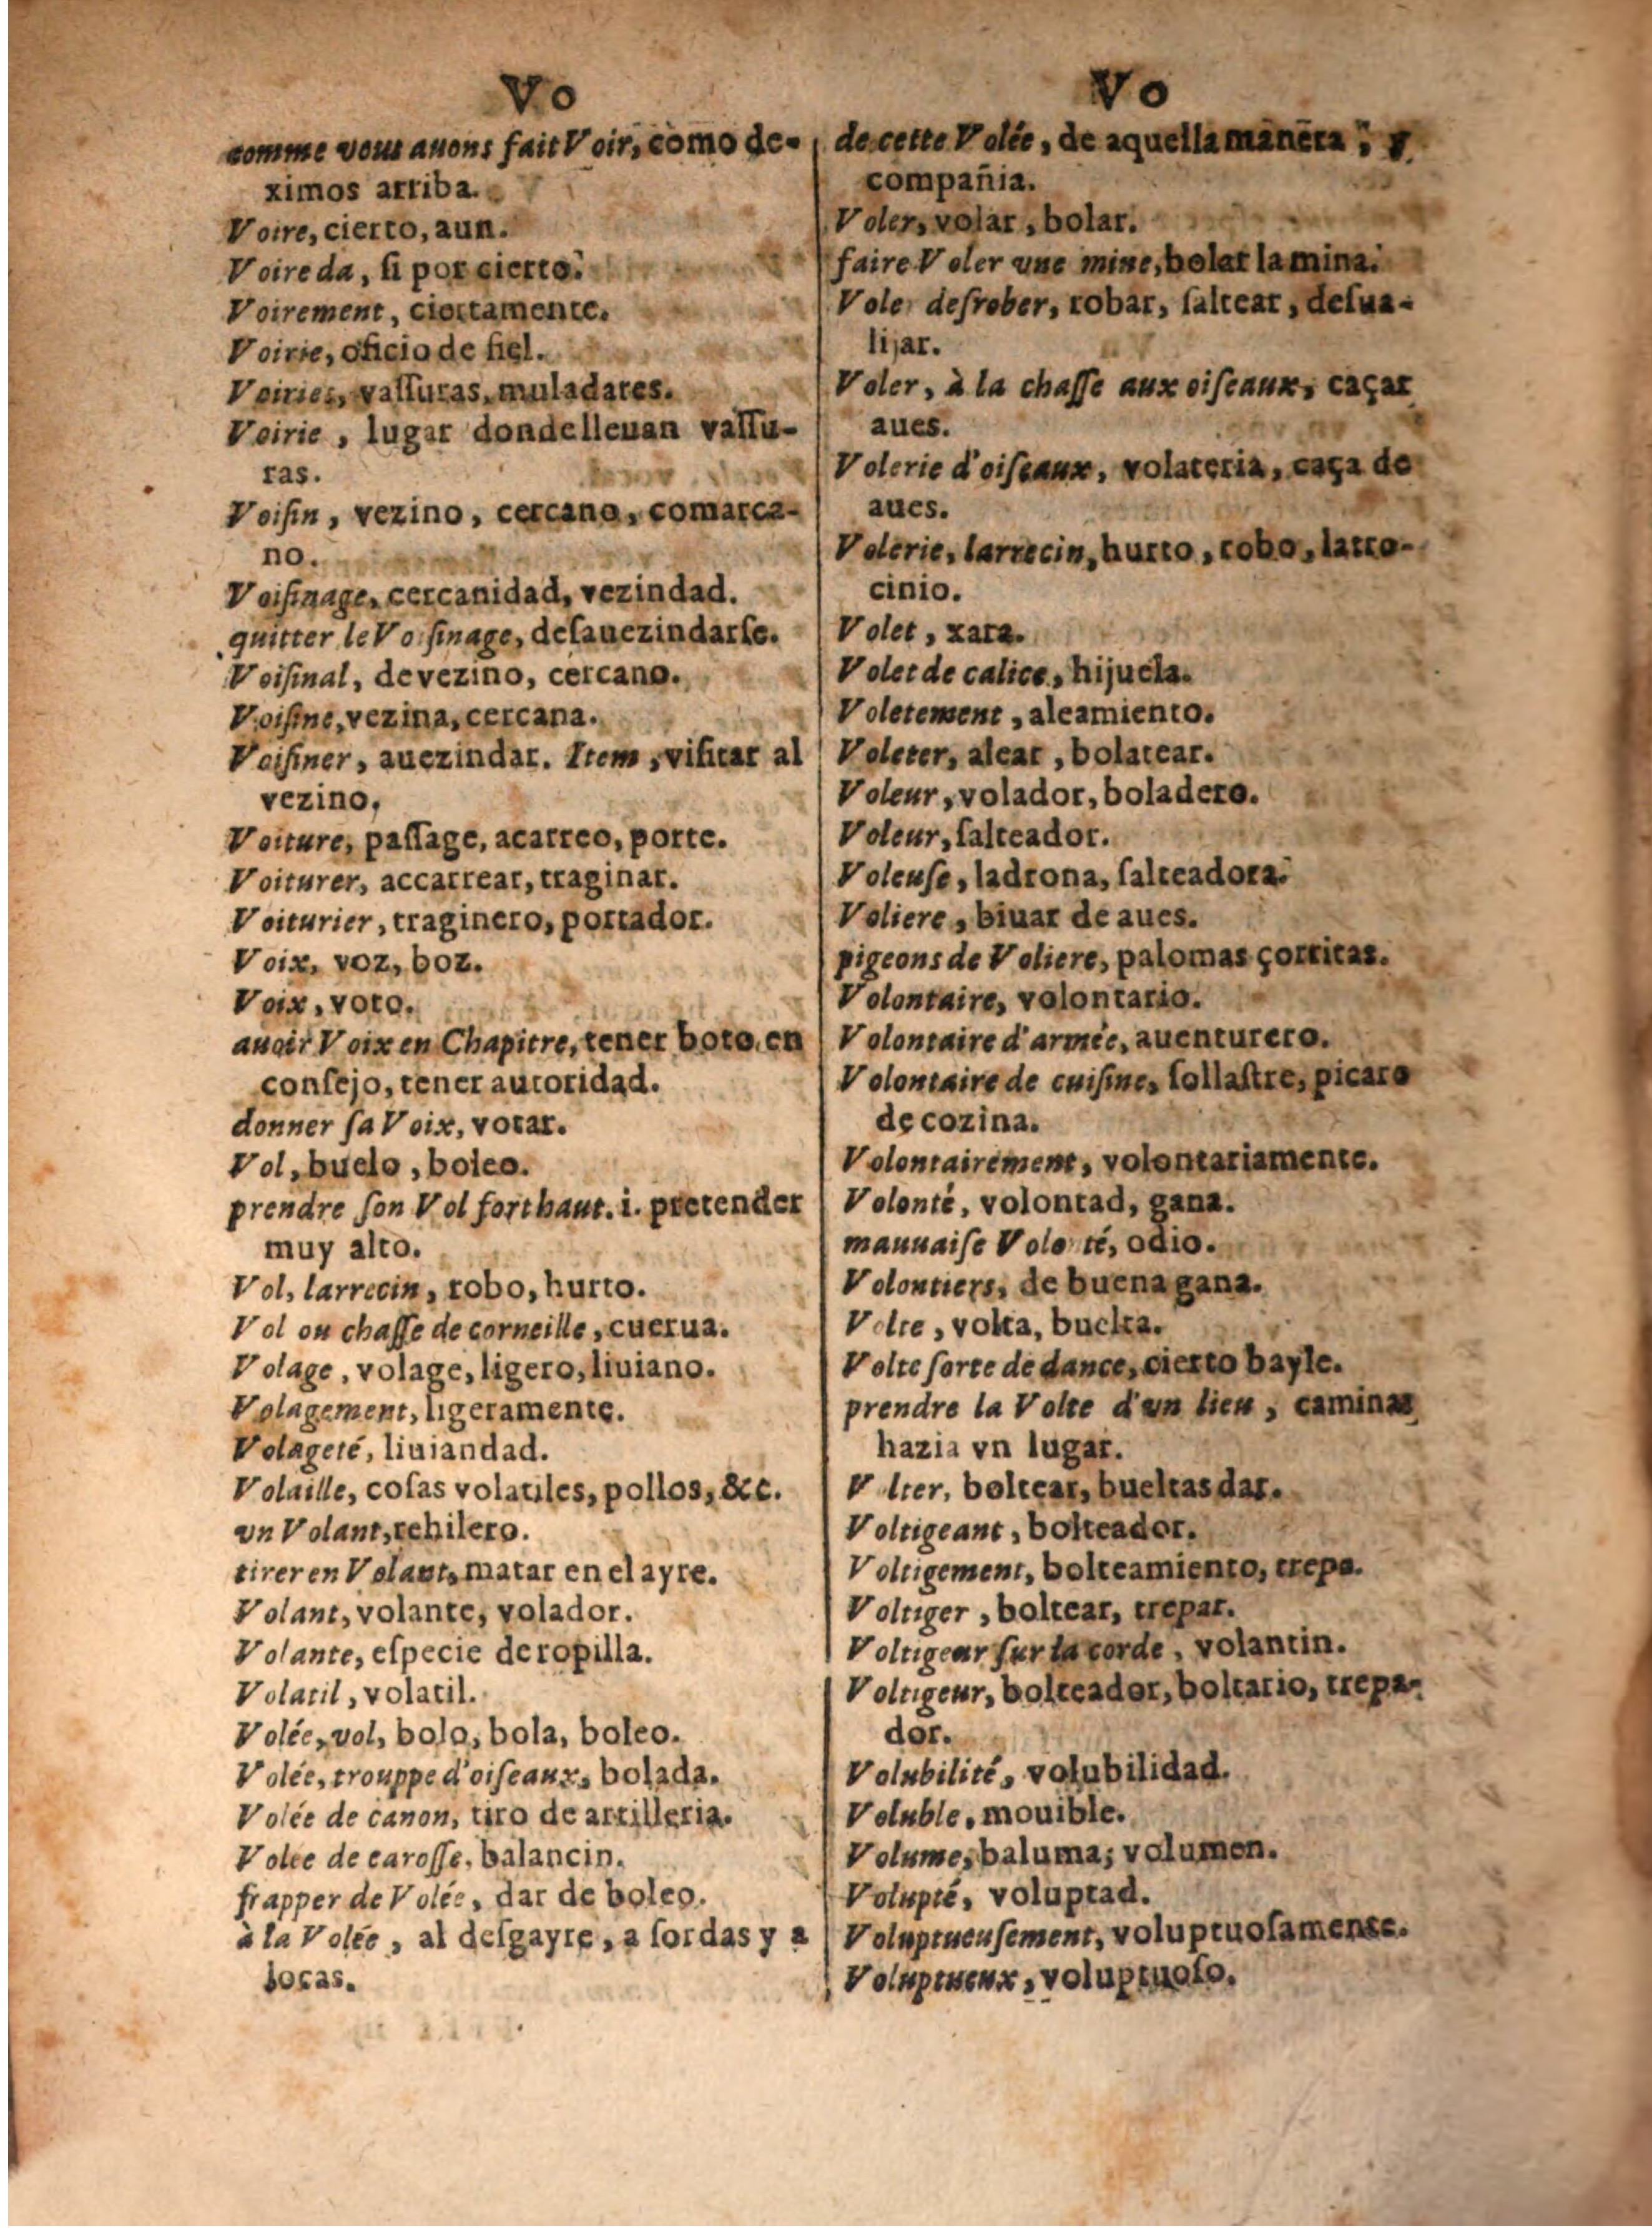 Vo
comme vous auons fait Voir, como de-
ximos arriba.
Voire, cierto, aun.
Voire da, ſi por cierto.
Voirement, ciertamente.
Voirie, oficio de fiel.
Voiries, vaſſuras, muladares.
Voirie, lugar donde lleuan vaſſu-
ras.
Voiſin, vezino, cercano, comarca-
no.
Voiſinage, cercanidad, vezindad.
quitter le Voiſinage, deſauezindarſe.
Voiſinal, de vezino, cercano.
Voiſine, vezina, cercana.
Voiſiner, auezindar. Item, viſitar al
vezino,
Voiture, paſſage, acarreo, porte.
Voiturer, accarrear, traginar.
Voiturier, traginero, portador.
Voix, voz, boz.
Voix, voto.
auoir Voix en Chapitre, tener boto en
conſejo, tener autoridad.
donner ſa Voix, votar.
Vol, buelo, boleo.
prendre ſon Vol fort haut. i. pretender
muy alto.
Vol, larrecin, robo, hurto.
Vol ou chaſſe de corneille, cuerua.
Volage, volage, ligero, liuiano.
Volagement, ligeramente.
Volageté, liuiandad.
Volaille, coſas volatiles, pollos, &c.
vn Volant, rehilero.
tirer en Volant, matar en el ayre.
Volant, volante, volador.
Volante, eſpecie de ropilla.
Volatil, volatil.
Volée, vol, bolo, bola, boleo.
Volée, trouppe d'oiſeaux, bolada.
Volée de canon, tiro de artilleria.
Volée de caroſſe, balancin.
frapper de Volée, dar de boleo.
à la Volée, al deſgayre, a ſordas y a
locas.
Vo
de cette Volée, de aquella manera, y
compañia.
Voler, volar, bolar.
faire Voler vne mine, bolar la mina.
Voler deſrober, robar, ſaltear, deſua-
lijar.
Voler, à la chaſſe aux oiſeaux, caçar
aues.
Volerie d'oiſeaux, volateria, caça de
aues.
Volerie, larrecin, hurto, robo, latro-
cinio.
Volet, xara.
Volet de calice, hijuela.
Voletement, aleamiento.
Voleter, alear, bolatear.
Voleur, volador, boladero.
Voleur, ſalteador.
Voleuſe, ladrona, ſalteadora.
Voliere, biuar de aues.
pigeons de Voliere, palomas çorritas.
Volontaire, volontario.
Volontaire d'armée, auenturero.
Volontaire de cuiſine, ſollaſtre, picaro
de cozina.
Volontairement, volontariamente.
Volonté, volontad, gana.
mauuaiſe Volonté, odio.
Volontiers, de buena gana.
Volte, volta, buelta.
Volte ſorte de dance, cierto bayle.
prendre la Volte d'un lieu, caminar
hazia vn lugar.
Volter, boltear, bueltas dar.
Voltigeant, bolteador.
Voltigement, bolteamiento, trepa.
Voltiger, boltear, trepar.
Voltigeur ſur la corde, volantin.
Voltigeur, bolteador, boltario, trepa-
dor.
Volubilité, volubilidad.
Voluble, mouible.
Volume, baluma; volumen.
Volupté, voluptad.
Voluptueuſement, voluptuoſamente.
Voluptueux, voluptuoſo.